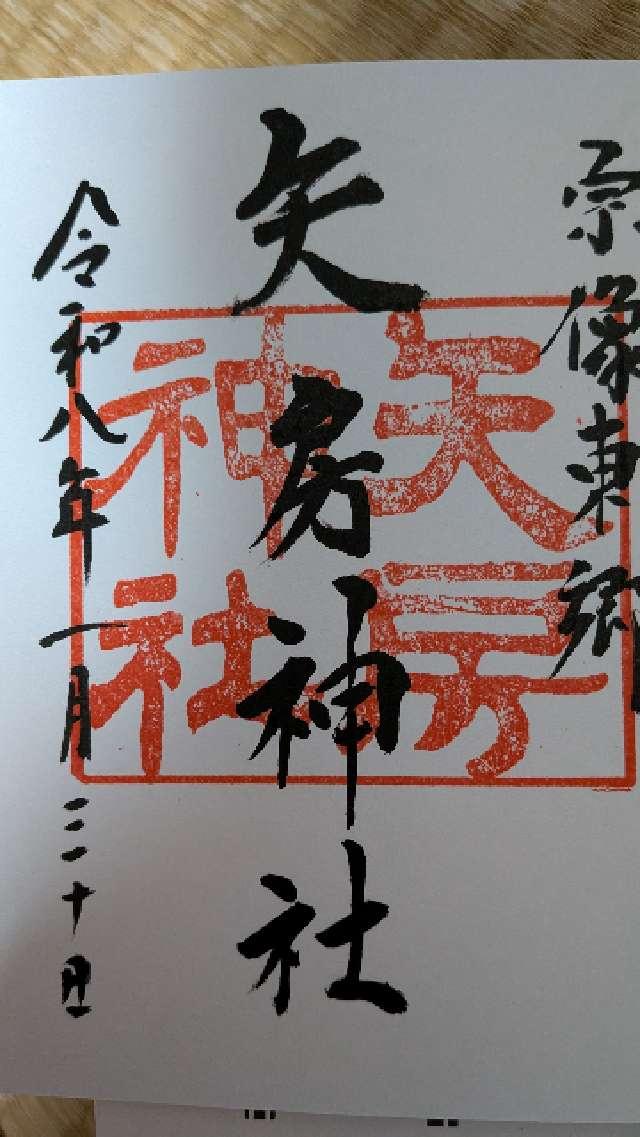 宗像東郷
矢房神社
矢房
神社
令和八年一月三十日